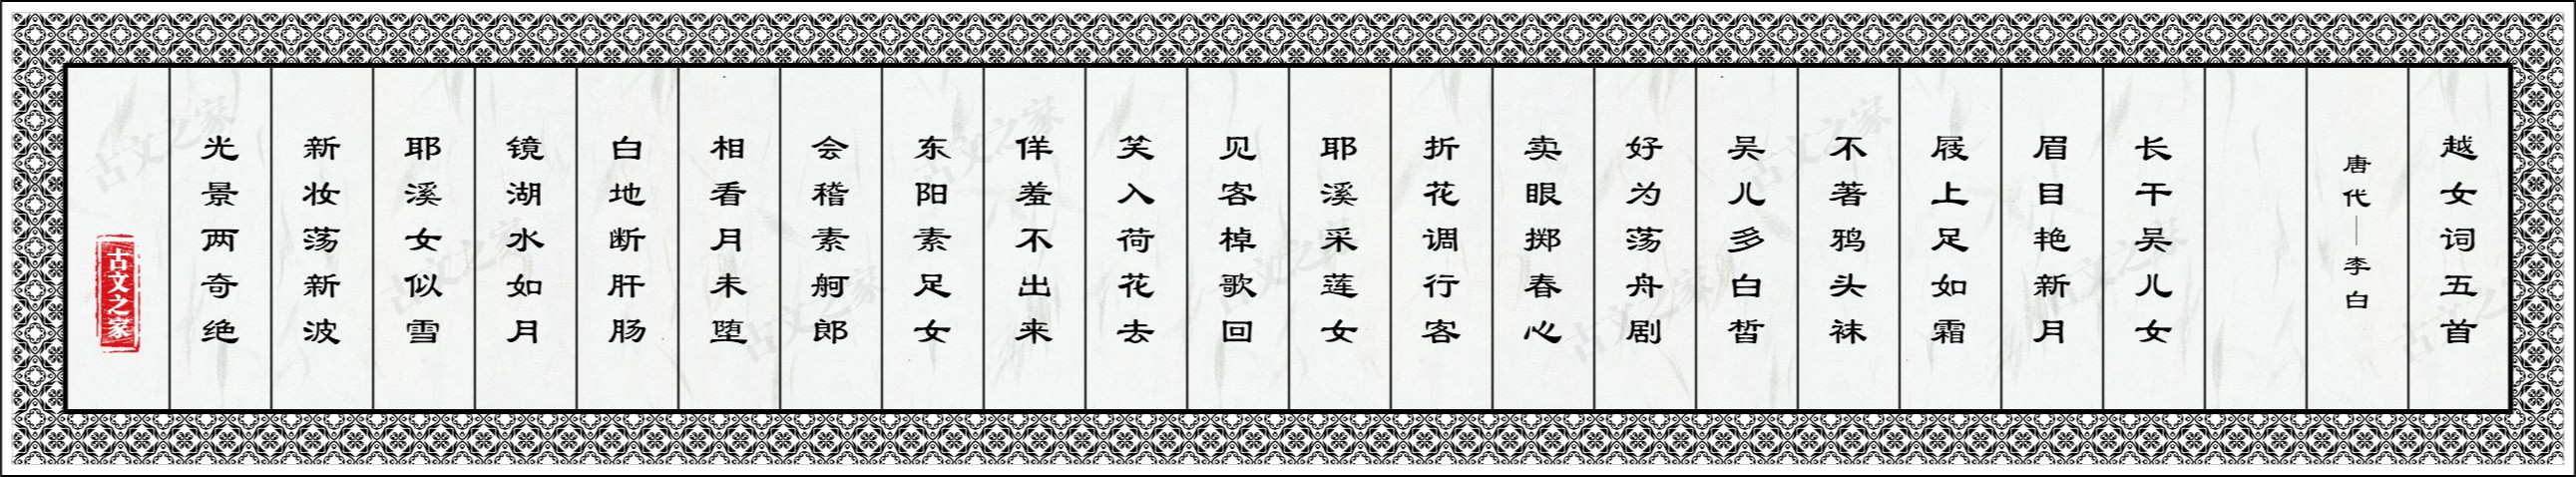 越女词五首
唐代—李白
长干吴儿女
眉目艳新月
屐上足如霜
不著鸦头袜
吴儿多白皙
好为荡舟剧
卖眼掷春心
折花调行客
耶溪采莲女
见客棹歌回
笑入荷花去
佯羞不出来
东阳素足女
会稽素舸郎
相看月未堕
白地断肝肠
镜湖水如月
耶溪女似雪
新妆荡新波
光景两奇绝
古文之家